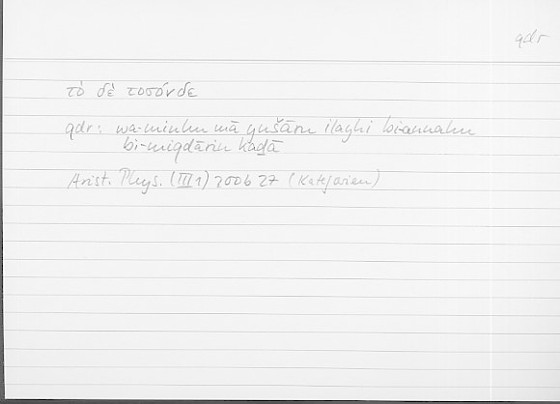 qdr
τὸ δὲ τοσόνδε
qdr: wa-minhu mā yušāru ilayhi bi-annahu
bi-miqdārin kaḏā
Arist. Phys. (III 1) 200b 27 (Kategorien)